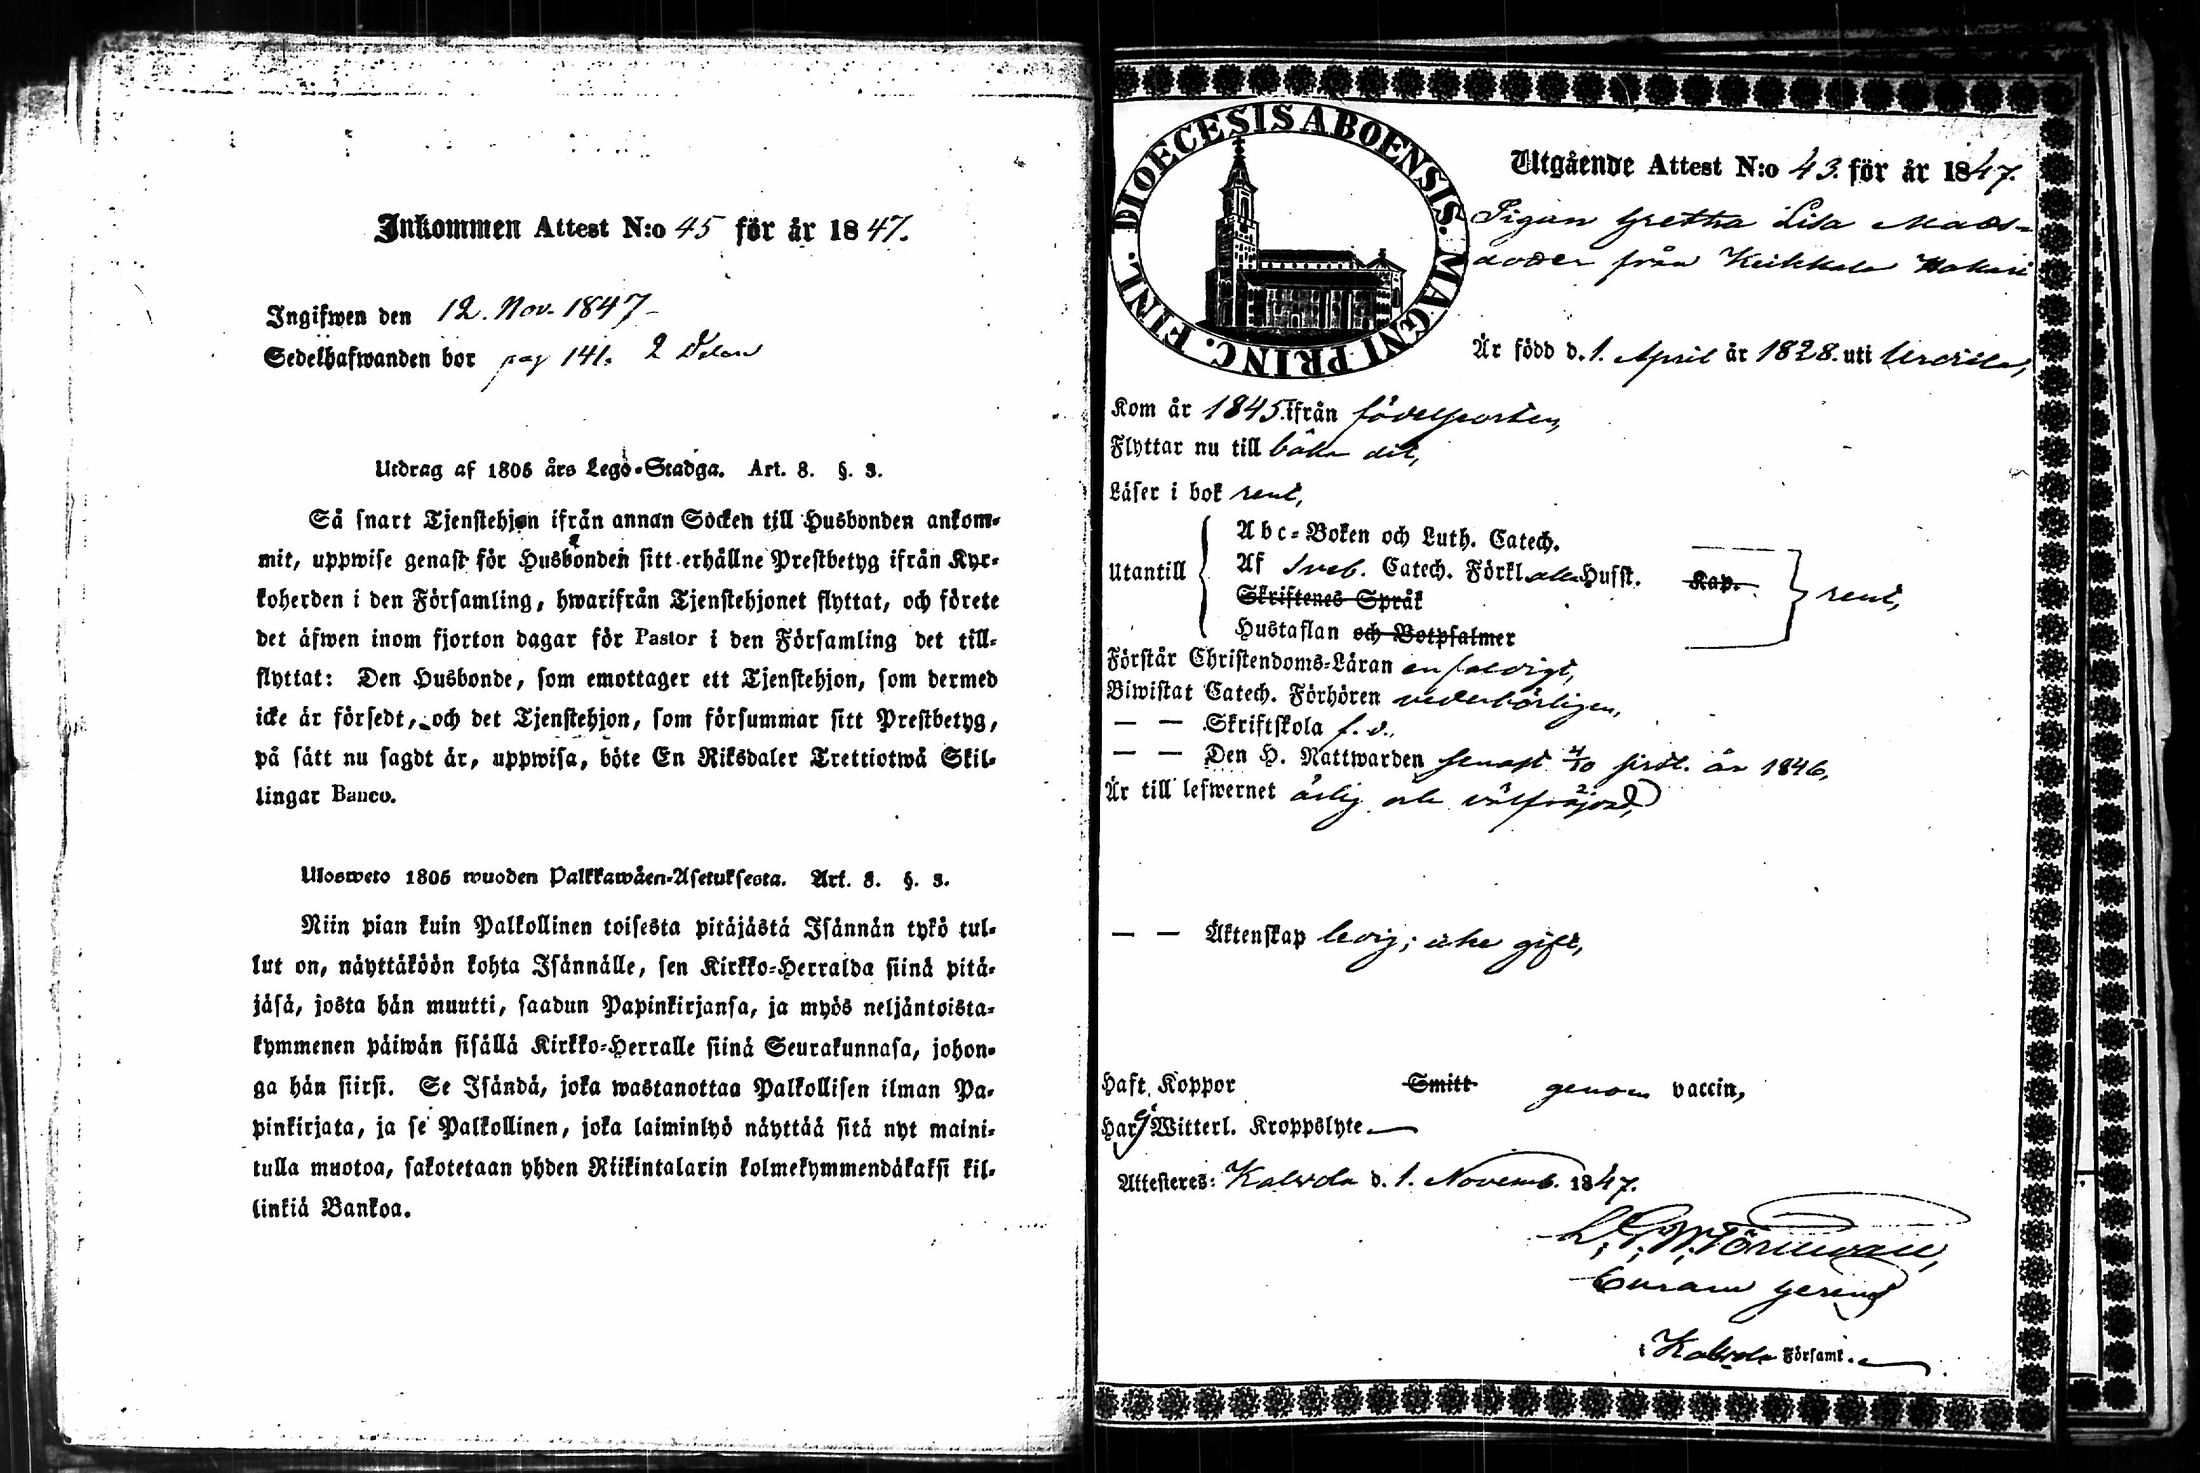 Inkommen Attest N:o 45 för år 1847.
Ingifwen den 12. Nov. 1847
Sedelhafwanden bor pag 141. 2 Delen
Utdrag af 1805 års Lego-Stadga. Art. 8. §. 3.
Så snart Tjenstehjon ifrån annan Socken till Husbonden ankom-
mit, uppwise genast för Husbonden sitt erhållne Prestbetyg ifrån Kyr-
koherden i den Församling, hwarifrån Tjenstehjonet flyttat, och förete
det äfwen inom fjorton dagar för Pastor i den Församling det till-
flyttat: Den Husbonde, som emottager ett Tjenstehjon, som dermed
icke är försedt, och det Tjenstehjon, som försummar sitt Prestbetyg,
på sätt nu sagdt är, uppwisa, böte En Riksdaler Trettiotwå Skil-
lingar Banco.
Ulosweto 1805 wuoden Palkkawäen-Asetuksesta. Art. 8. §. 3.
Niin pian kuin Palkollinen toisesta pitäjästä Isännän tykö tul-
lut on, näyttäköön kohta Isännälle, sen Kirkko-Herralda siinä pitä-
jäsä, josta hän muutti, saadun Papinkirjansa, ja myös neljäntoista-
kymmenen päiwän sisällä Kirkko-Herralle siinä Seurakunnasa, johon-
ga hän siirsi. Se Isändä, joka wastanottaa Palkollisen ilman Pa-
pinkirjata, ja se Palkollinen, joka laiminlyö näyttää sitä nyt maini-
tulla muotoa, sakotetaan yhden Riikintalarin kolmekymmendäkaksi kil-
linkiä Bankoa.
DIOECESIS ABOENSIS. MAGNI PRINC. FINL.
Utgående Attest N:o 43. för år 1847.
Pigan Gretha Lisa Mats-
doter från Keikkala
Är född d. 1. April år 1828. uti Urdiala,
Kom år 1845. ifrån födelseorten,
Flyttar nu till båka dit,
Läser i bok rent,
Utantill
Abc-Boken och Luth. Catech.
Af Sveb. Catech. Förkl. alla Husst. Kap.
Skriftenes Språk
Hustaflan och Botpsalmer
rent,
Förstår Christendoms-Läran enfaldigt,
Biwistat Catech. Förhören vederbörligen,
— — Skriftskola f. d.,
— — Den H. Nattwarden senast 4/10 sistl. år 1846,
Är till lefwernet ärlig och välfräjdad,
— — Äktenskap ledig; icke gift,
Haft Koppor Smitt genom vaccin,
Har ej Witterl. Kroppslyte
Attesteres: Kalvola d. 1. Novemb. 1847.
Törnwall,
Curam gerens
i Kalvola Församl.